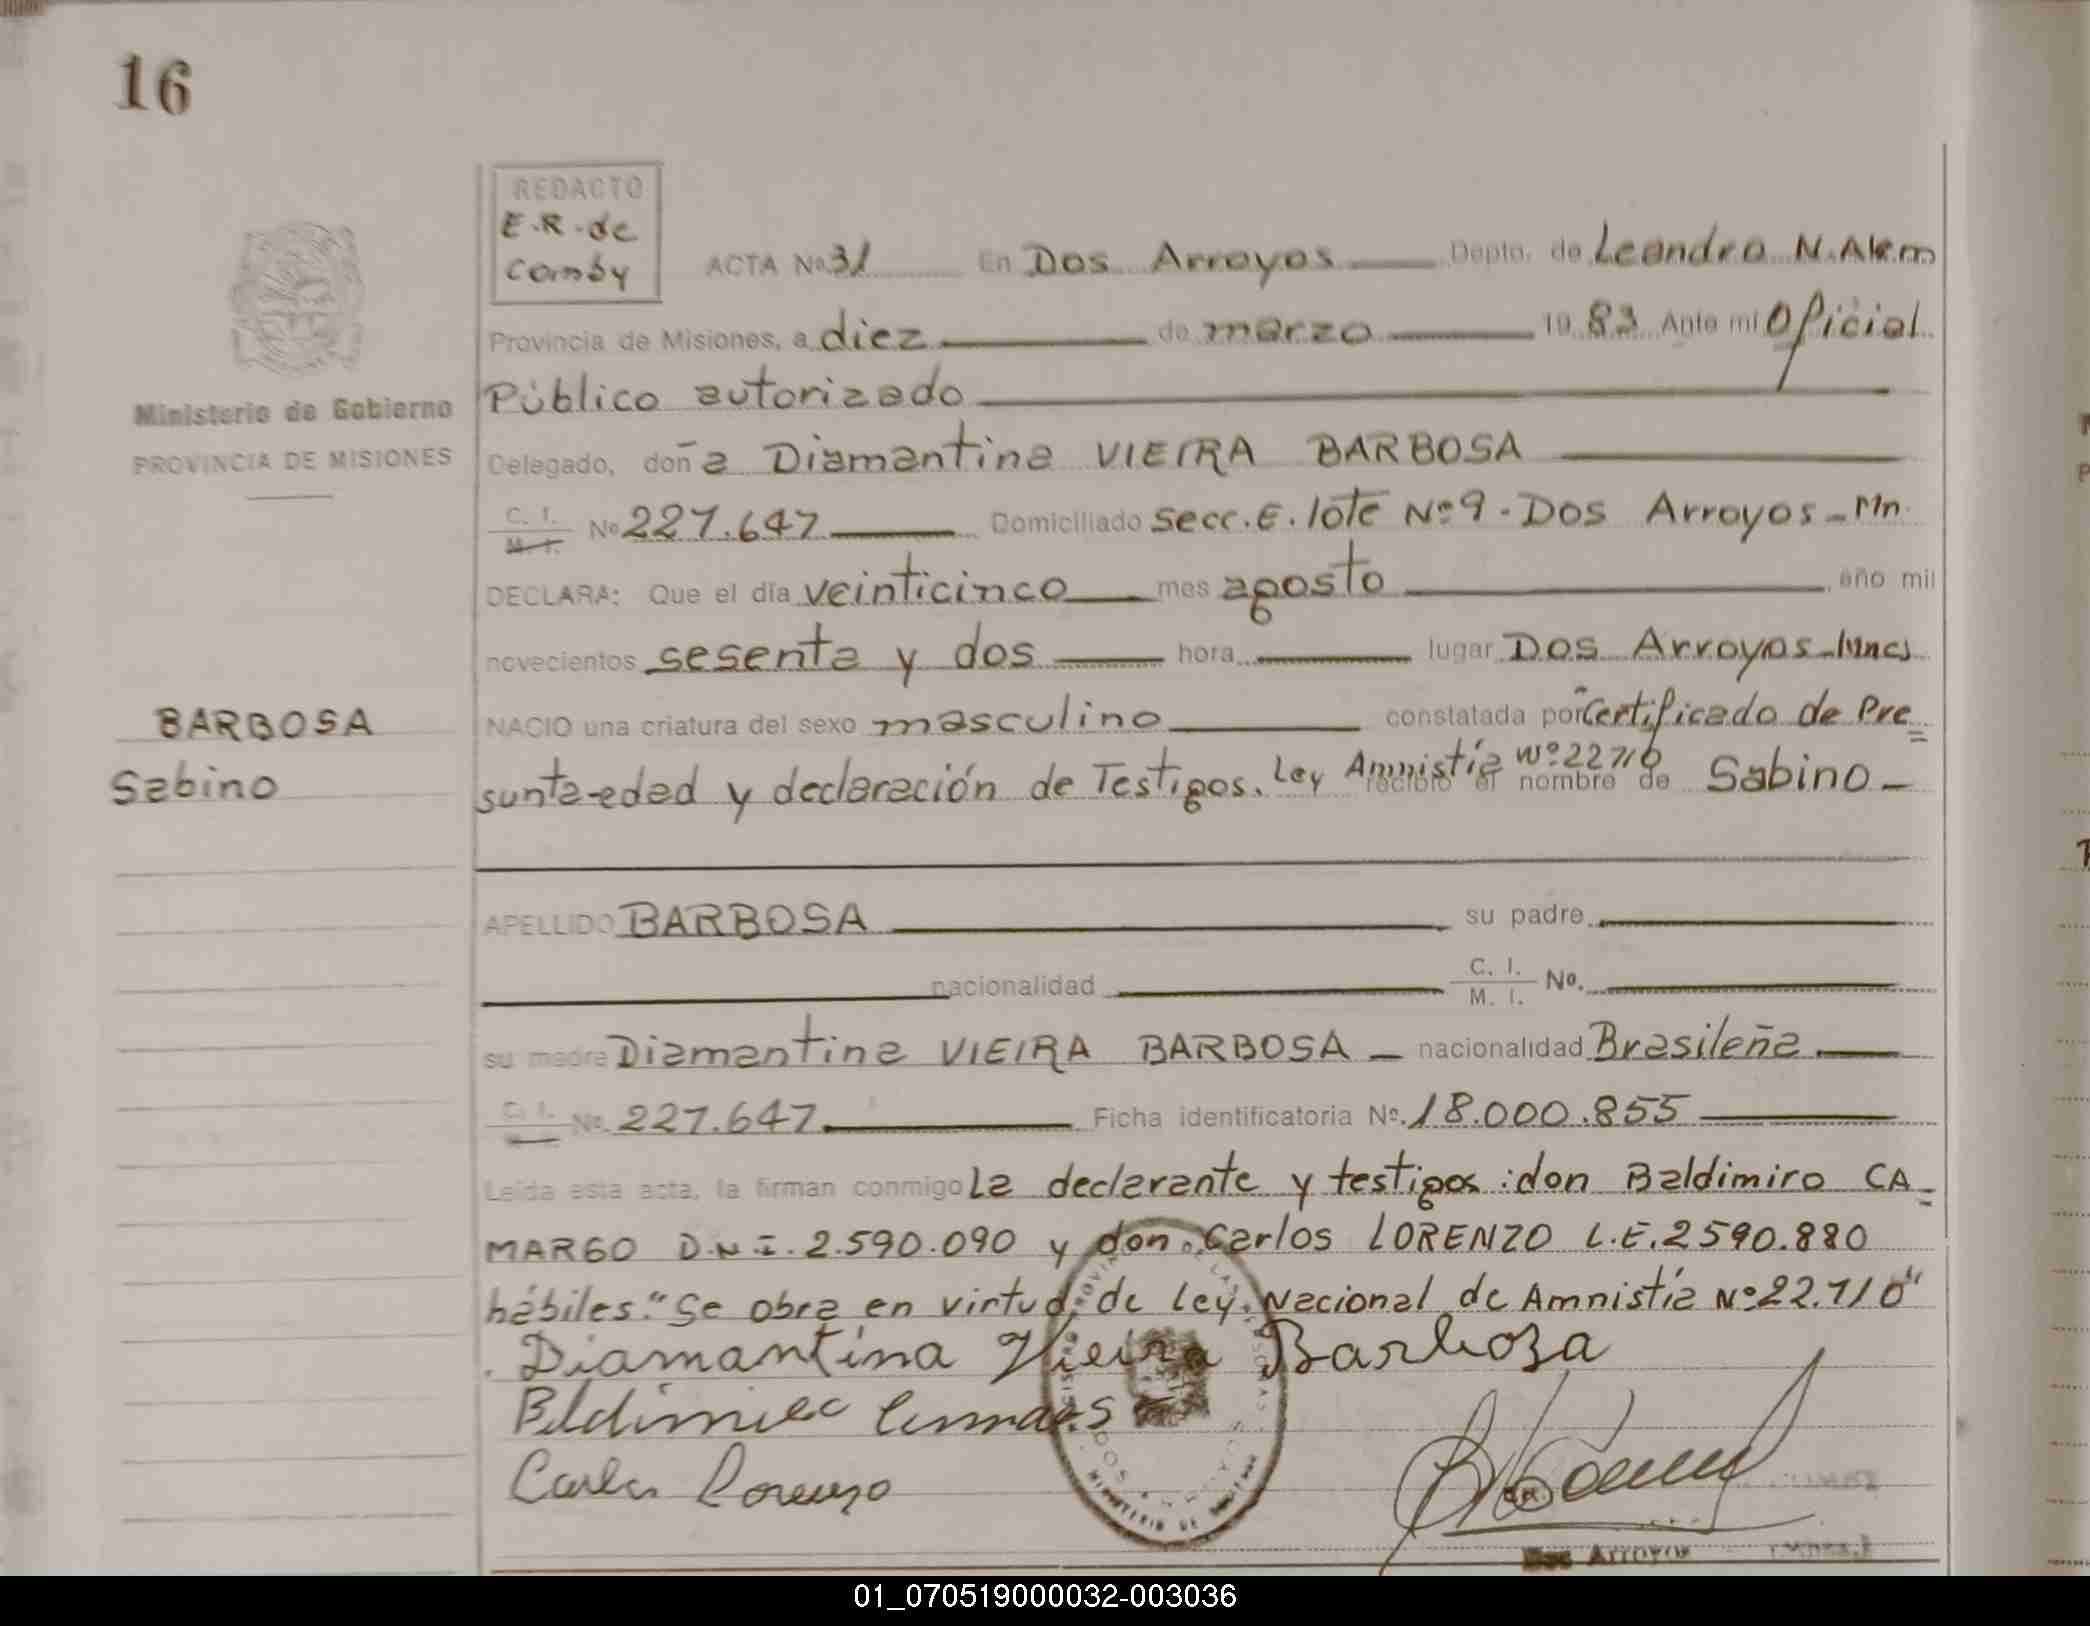 16
REDACTO
E.R. de
Comby
ACTA Nº 31 En Dos Arroyos Depto. de Leandro N. Alem
Provincia de Misiones, a diez de marzo 19 83 Ante mí Oficial
Público autorizado
Ministerio de Gobierno
PROVINCIA DE MISIONES
Delegado, doña Diamantina VIEIRA BARBOSA
C. I. M. I. Nº 227.647 Domiciliado Secc. E. lote Nº 9 - Dos Arroyos - Mn.
DECLARA: Que el día veinticinco mes agosto año mil
novecientos sesenta y dos hora lugar Dos Arroyos
BARBOSA
Sabino
NACIO una criatura del sexo masculino constatada por Certificado de Pre=
sunta-edad y declaración de Testigos. Ley Amnistía Nº 22710 recibió el nombre de Sabino -
APELLIDO BARBOSA su padre
nacionalidad C. I. M. I. Nº.
su madre Diamantina VIEIRA BARBOSA - nacionalidad Brasileña
C. I. Nº. 227.647 Ficha identificatoria Nº. 18.000.855
Leída esta acta, la firman conmigo La declarante y testigos: don Baldimiro CA=
MARGO D.N.I. 2.590.090 y don Carlos LORENZO L.E. 2590.880
hábiles. "Se obra en virtud de ley Nacional de Amnistía Nº 22.710"
Diamantina Vieira Barboza
Carlos Lorenzo
Dos Arroyos
01_070519000032-003036